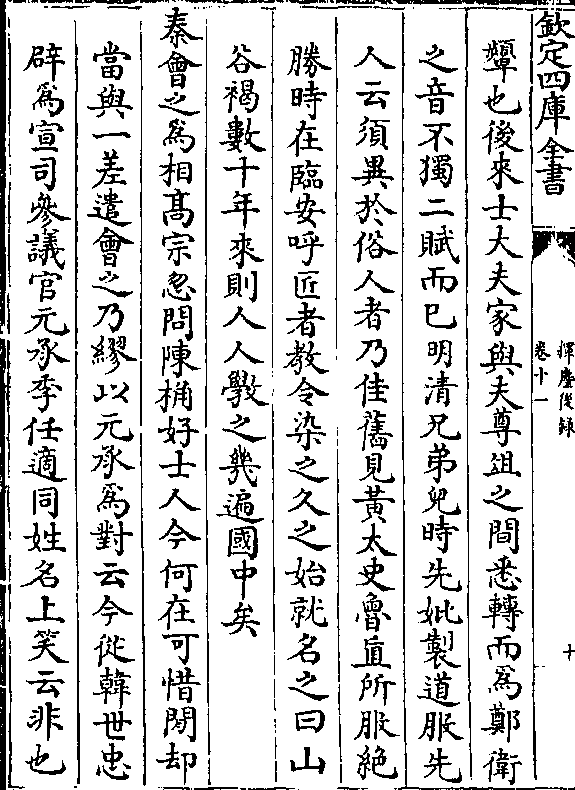 欽定四庫全書
揮麈後錄
卷十一
十
顰也後來士大夫家與夫尊俎之間悉轉而為鄭衛
之音不獨二賦而已明清兄弟兒時先妣製道服先
人云須異於俗人者乃佳舊見黃太史魯直所服絶
勝時在臨安呼匠者教令染之久之始就名之曰山
谷褐數十年來則人人斆之幾遍國中矣
秦會之為相髙宗忽問陳桷好士人今何在可惜閒却
當與一差遣會之乃繆以元承為對云今從韓世忠
辟為宣司參議官元承季任適同姓名上笑云非也